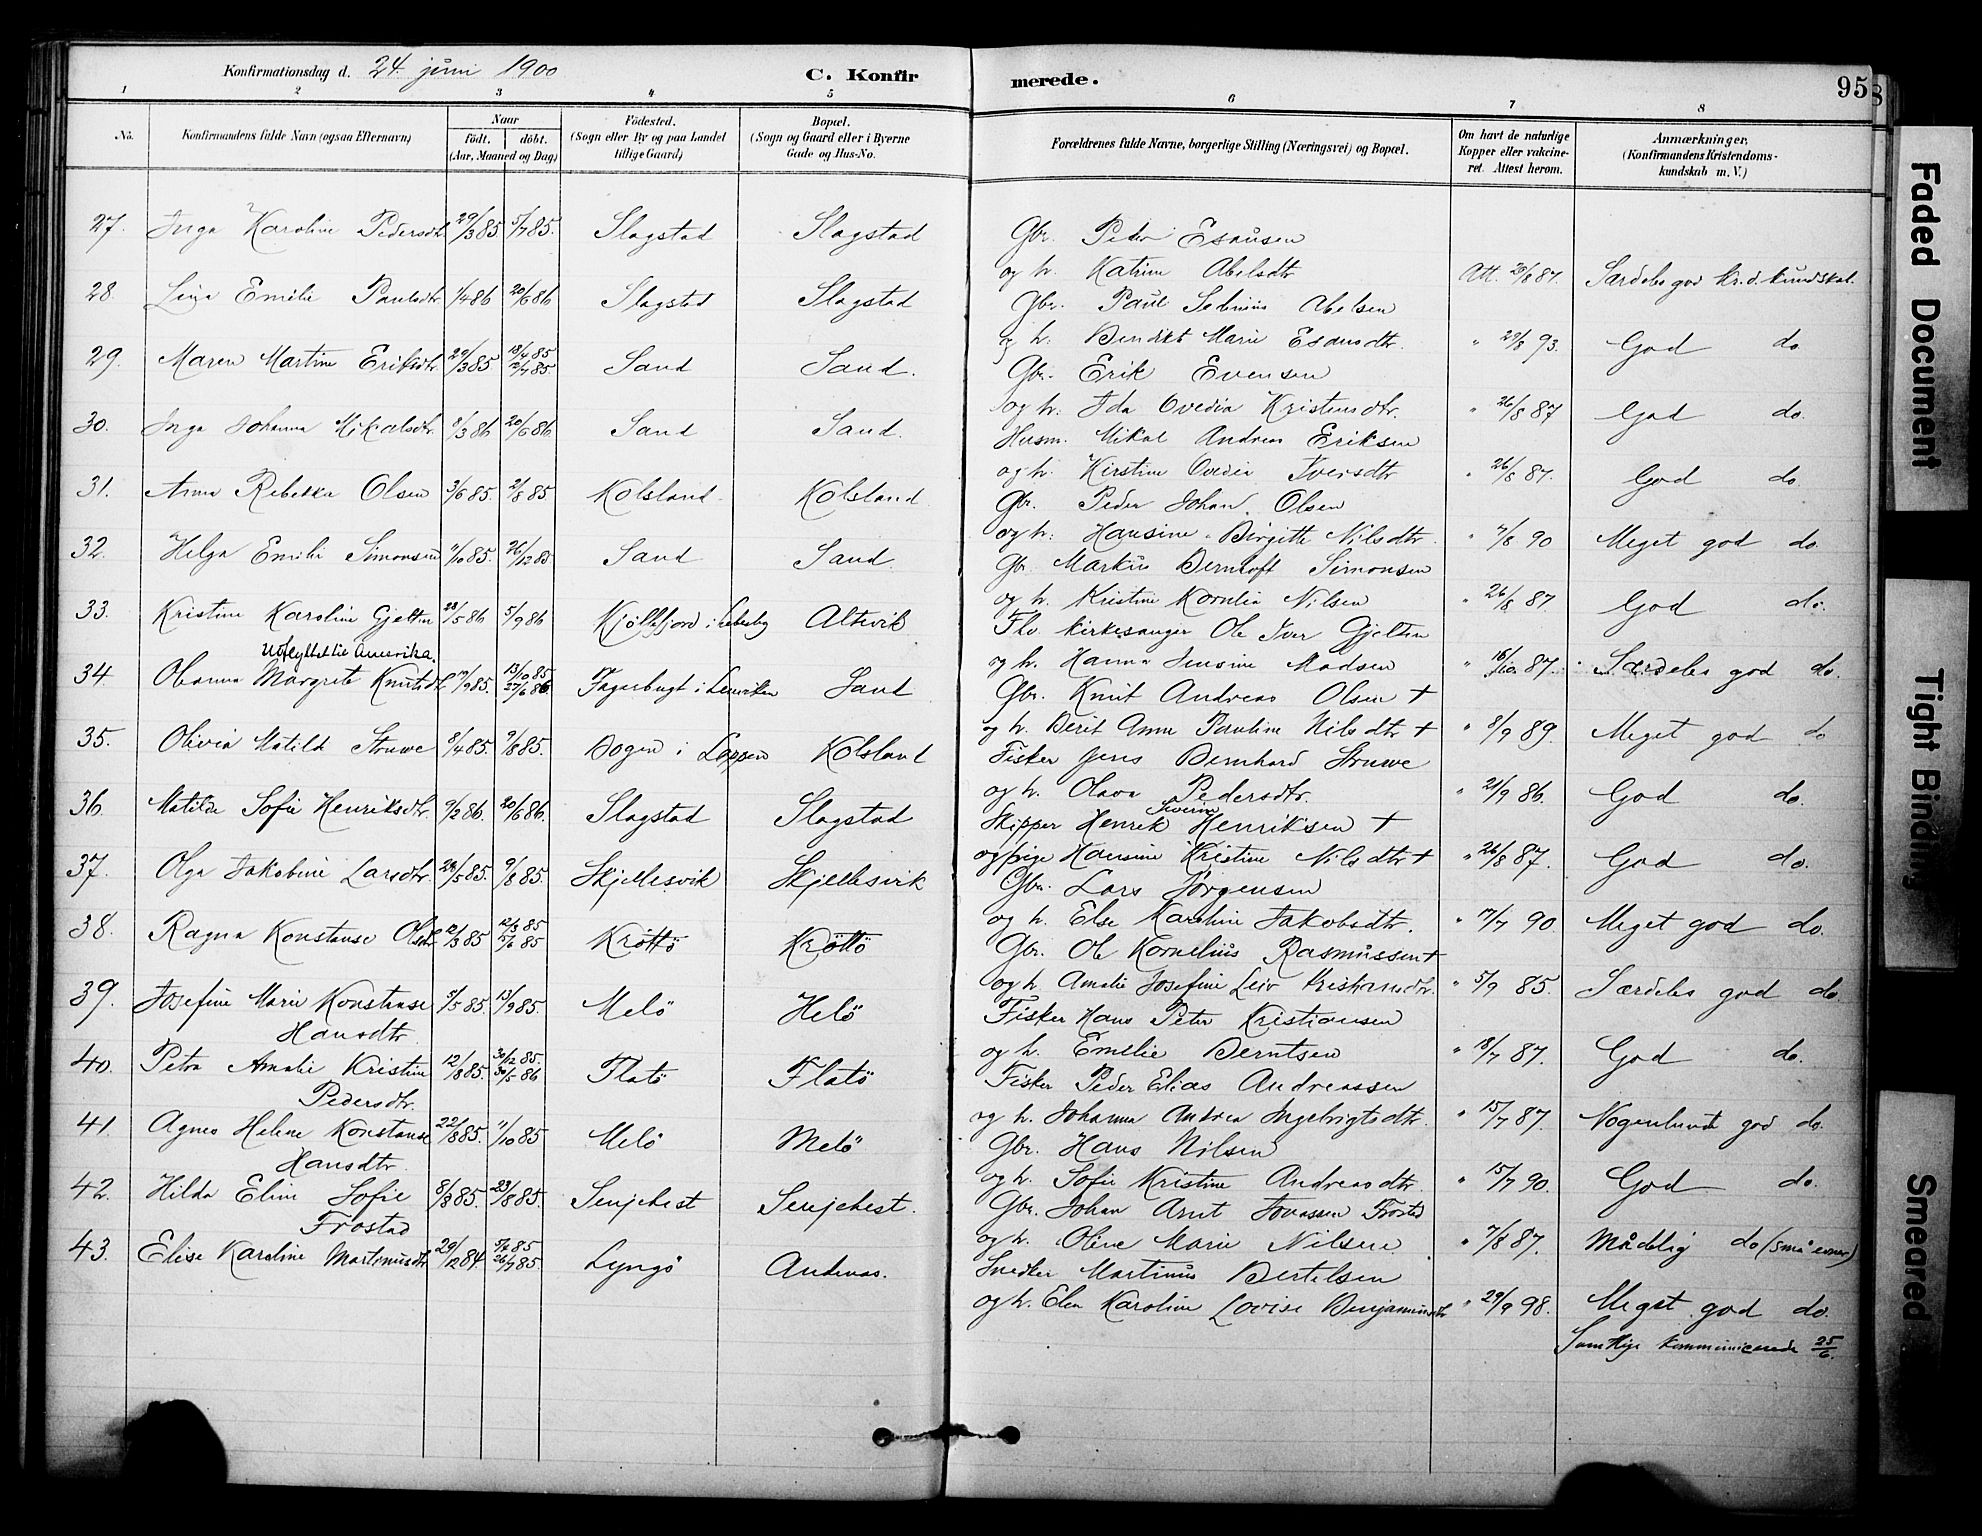 Konfirmationsdag d. 24 juni 1900
C. Konfirmerede.
95
1 2 3 4 5 6 7 8
No.
Konfirmandens fulde Navn (ogsaa Efternavn)
Naar
födt. döbt.
(Aar, Maaned og Dag)
Födested.
(Sogn eller By og paa Landet
tillige Gaard)
Bopæl.
(Sogn og Gaard eller i Byerne
Gade og Hus-No.
Forældrenes fulde Navne, borgerlige Stilling (Næringsvei) og Bopæl.
Om havt de naturlige
Kopper eller vakcine-
ret. Attest herom.
Anmærkninger.
(Konfirmandens Kristendoms-
kundskab m. V.)
27. Inga Karoline Pedersdtr 29/3 85 5/7 85. Slagstad Slagstad Gbr. Peder Esausen
og h. Katrine Abelsdtr Att. 87. Særdeles god kr.d.kundskab.
28. Lina Emilie Paulsdtr 1/4 86 20/6 86 Slagstad Slagstad Gbr. Paul Abelsen
og h. Marie Esausdtr. " 29/8 93. God do
29. Maren Martine Eriksdtr 29/3 85 18/4 85 12/7 85. Sand Sand. Gbr. Erik Evensen
og h. Ida Ovedia Kristensdtr. " 26/8 87 God do.
30. Inga Johanna Mikalsdtr. 8/3 86 20/6 86 Sand Sand. Husm. Mikal Andreas Eriksen
og h. Kirstine Ovedia Iversdtr " 26/8 87. God do.
31. Anna Rebekka Olsen 3/6 85. 2/8 85 Kolsland Kolsland Gbr. Peder Johan Olsen
og h. Hansine Birgitte Nilsdtr. " 7/8 90 Meget god do.
32. Helga Emilie Simonsen 11/10 85. 26/12 85 Sand Sand Gbr. Markus Berntoft Simonsen
og h. Kristine Kornelia Nilsen " 26/8 87. God do.
33. Kristine Karoline Gjelten 28/5 86 5/9 86 Kjöllefjord i Lebesby Altevik Fhv kirkesanger Ole Iver Gjelten
Udflyttet til Amerika.
og h. Hanna Jensine Madsen " 16/10 87. Særdeles god do.
34. Oleanna Margrete Knutsdtr 85. 13/10 85 27/6 86 Fagerbugt i Lenviken Sand Gbr. Knut Andreas Olsen †
og h. Berit Anne Pauline Nilsdtr † " 8/9 89. Meget god do
35. Olivia Matild Struwe 8/4 85. 9/8 85. Bogen i Loppen Kolsland Fisker Jens Bernhard Struwe
og h. Olava Pedersdtr. " 21/9 86. God do.
36. Matilde Sofie Henriksdtr. 9/2 86. 20/6 86. Slagstad Slagstad Skipper Henrik Severin Henriksen †
og pige Hansine Kristine Nilsdtr † " 26/8 87. God do.
37. Olga Jakobine Larsdtr. 24/5 85. 9/8 85. Skjellesvik Skjellesvik Gbr. Lars Jörgensen
og h. Else Karoline Jakobsdtr. " 17/7 90. Meget god do.
38. Ragna Konstanse Olsdtr 12/3 85 12/3 85 15/6 85 Kröttö Kröttö Gbr. Ole Kornelius Rasmussen †
og h. Amalie Josefine Kristiansdtr. " 5/9 85. Særdeles god do.
39. Josefine Marie Konstanse 5/5 85. 13/9 85. Melö Helö Fisker Hans Peter Kristiansen
Hansdtr.
og h. Emelie Berntsen " 18/7 87. God do.
40. Petra Amalie Kristine 12/8 85. 30/12 85. 30/5 86 Flatö Flatö Fisker Peder Elias Andreassen
Pedersdtr.
og h. Johanna Andrea Ingebrigtsdtr. " 15/7 87. Nogenlunde god do.
41. Agnes Helene Konstanse 22/8 85. 11/10 85 Melö Melö Gbr. Hans Nilsen
Hansdtr.
og h. Sofie Kristine Andreasdtr " 15/7 90. God do.
42. Hilda Eline Sofie 8/3 85. 23/8 85. Senjehest Senjehest. Gbr. Johan Arnt Jonassen Frostad
Frostad
og h. Oline Marie Nilsen " 7/8 87. Mådelig do (små evner)
43. Elise Karoline Martinusdtr 29/12 84. 85 26/7 85. Lyngö Andenæs. Snedker Martinus Bertelsen
og h. Elen Karoline Lovise Benjaminsdtr " 29/9 98. Meget god do.
Samtlige kommunicerede 25/6.
Faded Document
Tight Binding
Smeared